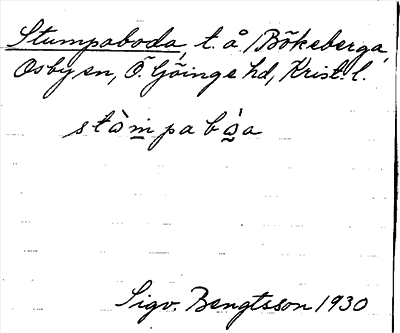 Stumpaboda, t. å. Bökeberga,
Osby sn, Ö. Göinge hd, Krist. l.
stòm̲pabò̲a
Sigv. Bengtsson 1930